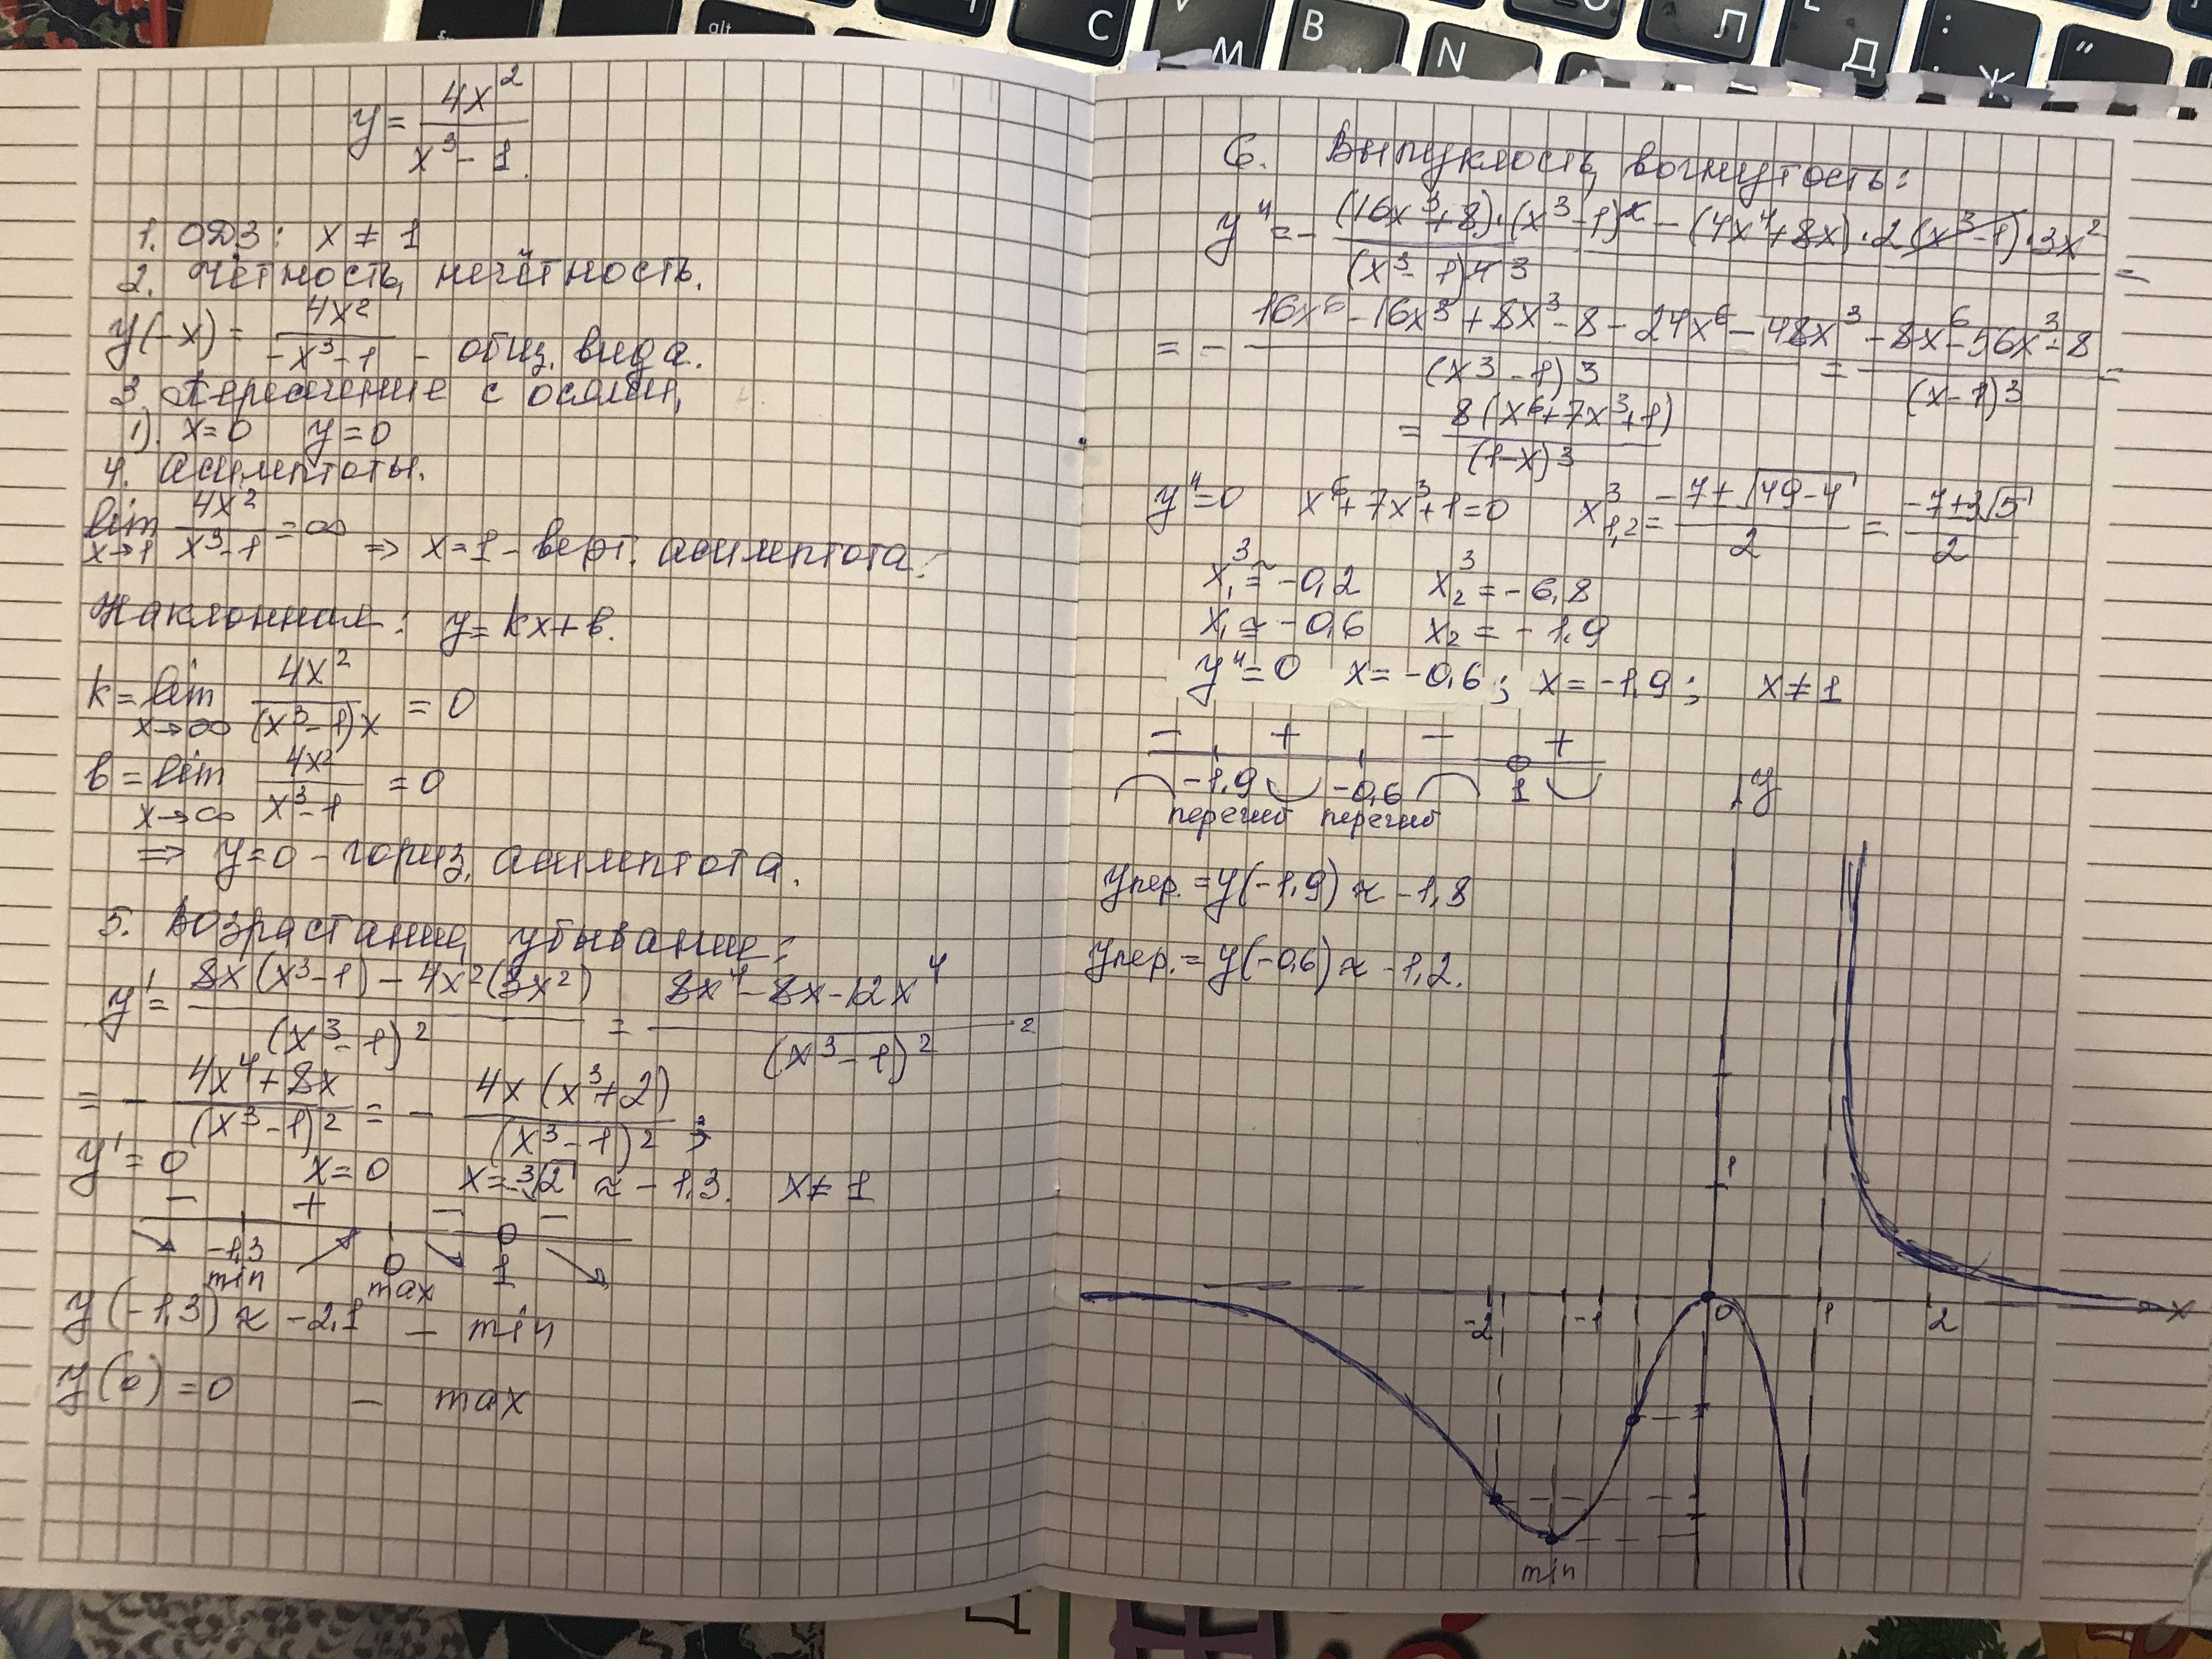 y = 4x²/(x³ - 1)
1. ОДЗ: x ≠ 1
2. Чётность, нечётность.
y(-x) = 4x²/(-x³-1) - общ. вида.
3. Пересечение с осями,
1). x=0 y=0
4. Асимптоты.
lim x→1 4x²/(x³-1) = ∞ ⇒ x=1 - верт. асимптота.
Наклонная: y = kx+b.
k = lim x→∞ 4x²/((x³-1)x) = 0
b = lim x→∞ 4x²/(x³-1) = 0
⇒ y=0 - гориз. асимптота.
5. Возрастание, убывание:
y' = (8x(x³-1) - 4x²(3x²))/(x³-1)² = (8x⁴-8x-12x⁴)/(x³-1)² =
= - (4x⁴+8x)/(x³-1)² = - 4x(x³+2)/(x³-1)² ;
y'=0 x=0 x=-³√2 ≈ -1,3. x≠1
- + - -
-1,3 0 0 1
min max
y(-1,3) ≈ -2,1 - min
y(0) = 0 - max
6. Выпуклость, вогнутость:
y" = - ((16x³+8)·(x³-1)² - (4x⁴+8x)·2(x³-1)·3x²)/(x³-1)⁴ ³ =
= - (16x⁶-16x³+8x³-8-24x⁶-48x³)/(x³-1)³ = (-8x⁶-56x³-8)/(x-1)³ =
= 8(x⁶+7x³+1)/(1-x)³
y"=0 x⁶+7x³+1=0 x³₁,₂ = (-7±√(49-4))/2 = (-7±3√5)/2
x₁³ ≈ -0,2 x₂³ = -6,8
x₁ ≈ -0,6 x₂ = -1,9
y"=0 x=-0,6; x=-1,9; x≠1
- + - +
-1,9 -0,6 1
перегиб перегиб
yпер. = y(-1,9) ≈ -1,8
yпер. = y(-0,6) ≈ -1,2.
y
1
-2 -1 0 1 2 x
min
alt
C
М
B
N
Л
Д
Ж